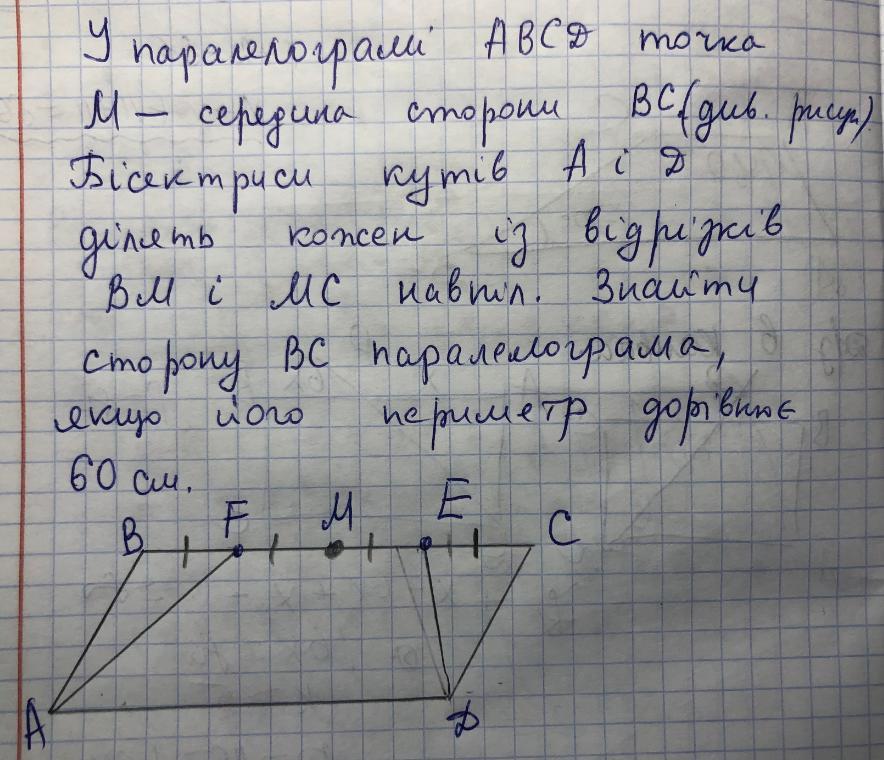 У паралелограмі ABCD точка
M – середина сторони BC (див. рисун.)
Бісектриси кутів A і D
ділять кожен із відрізків
BM і MC навпіл. Знайти
сторону BC паралелограма,
якщо його периметр дорівнює
60 см.
B F M E C
A D